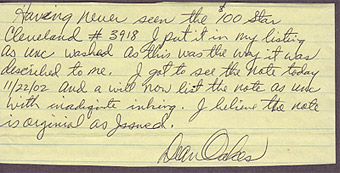 Having never seen the $100 Star
Cleveland # 3918 I put it in my listing
as unc washed as this was the way it was
discribed to me. I got to see the note today
11/22/02 and a will now list the note as unc
with inadiquite inking. I belive the note
is orginial as Issued.
Dean Oakes